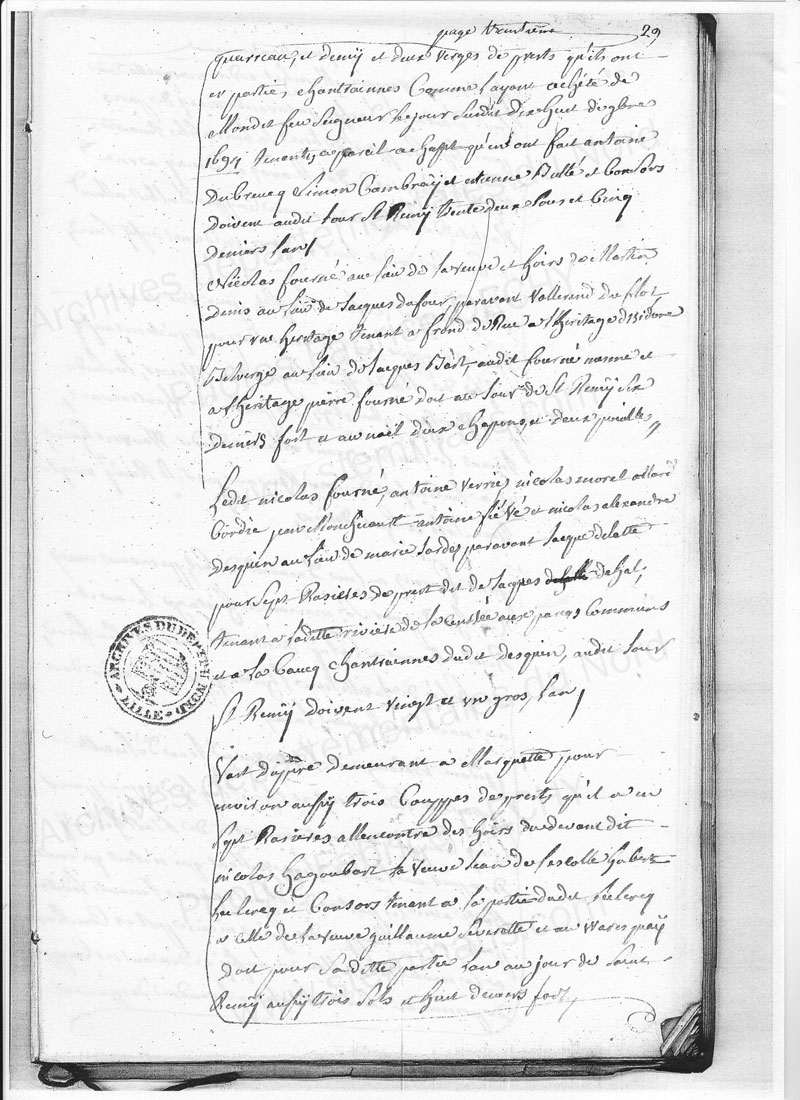 page trentieme 29
quarreau, et demÿ et deux verges de prets qu'ils ont
en partie, chantraiennes Comme l'ayant achété de
Mondit feu Seigneur le jour Susdit dix huit d'xbre
1694 a pareil achapt qu'en ont fait antoine
Dubreucq Simon Cambraÿ et etienne Bulté et Consors
doivent audit Jour St Remÿ trente deux Sous et Cinq
deniers l'an/
Nicolas fourné au lieu de la veuve et hoirs de Martin
Denis au lieu de Jacques dufour, paravant Vallerand du filot
pour un heritage tenant a frond de Rue a l'heritage d'isidore
au lieu de Jacques audit fourné mesme et
a l'heritage pierre fourné doit au Jour de St Remÿ Six
deniers fort et au noël deux chapons, et deux poulles
Ledit nicolas fourné, antoine verrié, nicolas morel
Cordier, jean antoine fiévé et nicolas alexandre
desquin au lieu de marie paravant Jacque delatte
pour Sept Rasieres de prest dit de Jacques dehal;
tenant a laditte riviere de la aux parcqs Communs
et a la Cauch Chantraiennes dudit desquin, audit Jour
St Remÿ doivent vingt et un gros, l'an/
demeurant a Marquette pour
environ aussÿ trois Couppes de prests qu'il a en
Sept Rasieres allencontre des hoirs du devant dit
nicolas Hagoubart la veuve Jean de lescolle hubert
Leclercq et Consors tenant a la partie dudit Leclercq
a celle de la veuve guillaume et au Waresquaÿ
doit pour Saditte partie l'an au jour de Saint
Remÿ aussÿ trois Sols et huit deniers fort,
ARCHIVES DU DEP. DU NORD
LILLE
Archives départementales du Nord